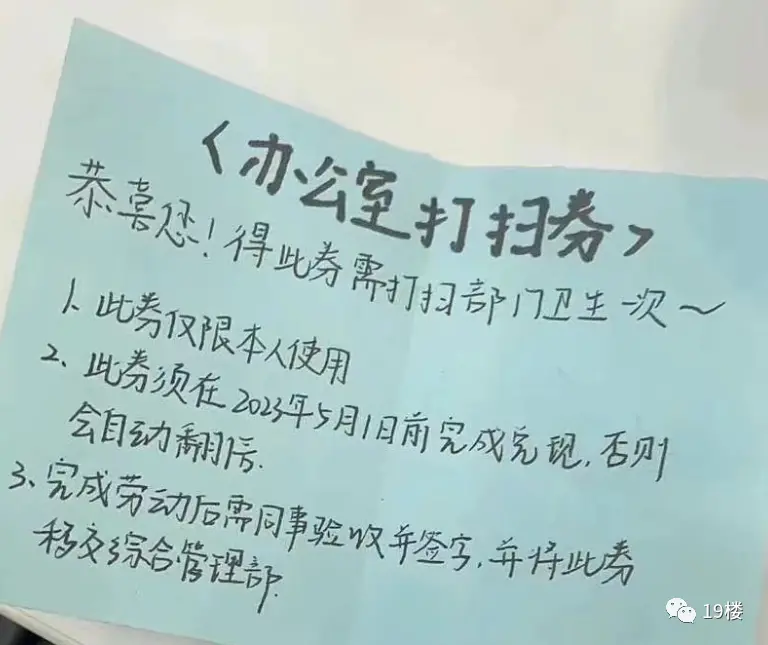 <办公室打扫券>
恭喜您！得此券需打扫部门卫生一次～
1、此券仅限本人使用
2、此券须在2023年5月1日前完成兑现，否则
会自动翻倍.
3、完成劳动后需同事验收并签字，并将此券
移交综合管理部.
19楼